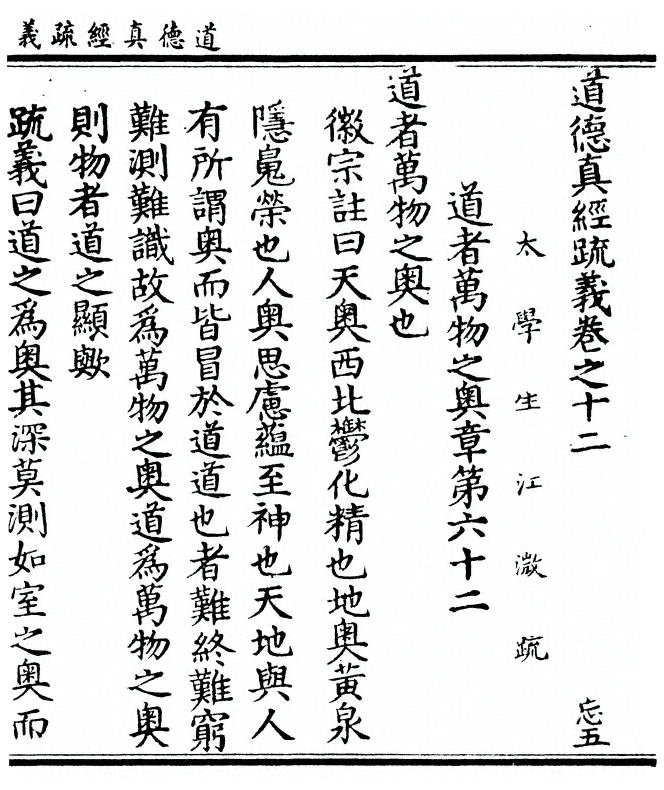 道德真經疏義
道德真經疏義卷之十二
忘五
太學生江澂疏
道者萬物之奧章第六十二
道者萬物之奧也
徽宗註曰天奧西北鬱化精也地奧黃泉
隱魄榮也人奧思慮蘊至神也天地與人
有所謂奧而皆冒於道道也者難終難窮
難測難識故爲萬物之奧道爲萬物之奧
則物者道之顯歟
疏義曰道之爲奧其深莫測如室之奧而